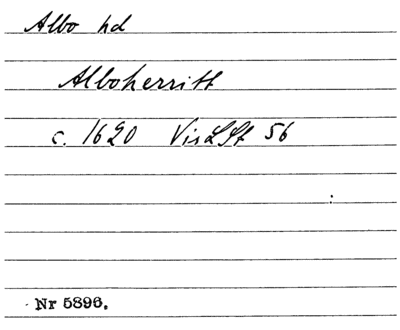 Albo hd
Alboherritt
c. 1620 VisLSt 56
Nr 5896.